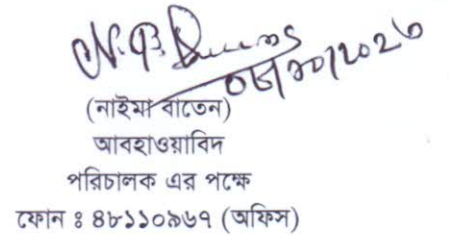 (নাইমা বাতেন)
আবহাওয়াবিদ
পরিচালক এর পক্ষে
ফোন ঃ ৪৮১১০৯৬৭ (অফিস)